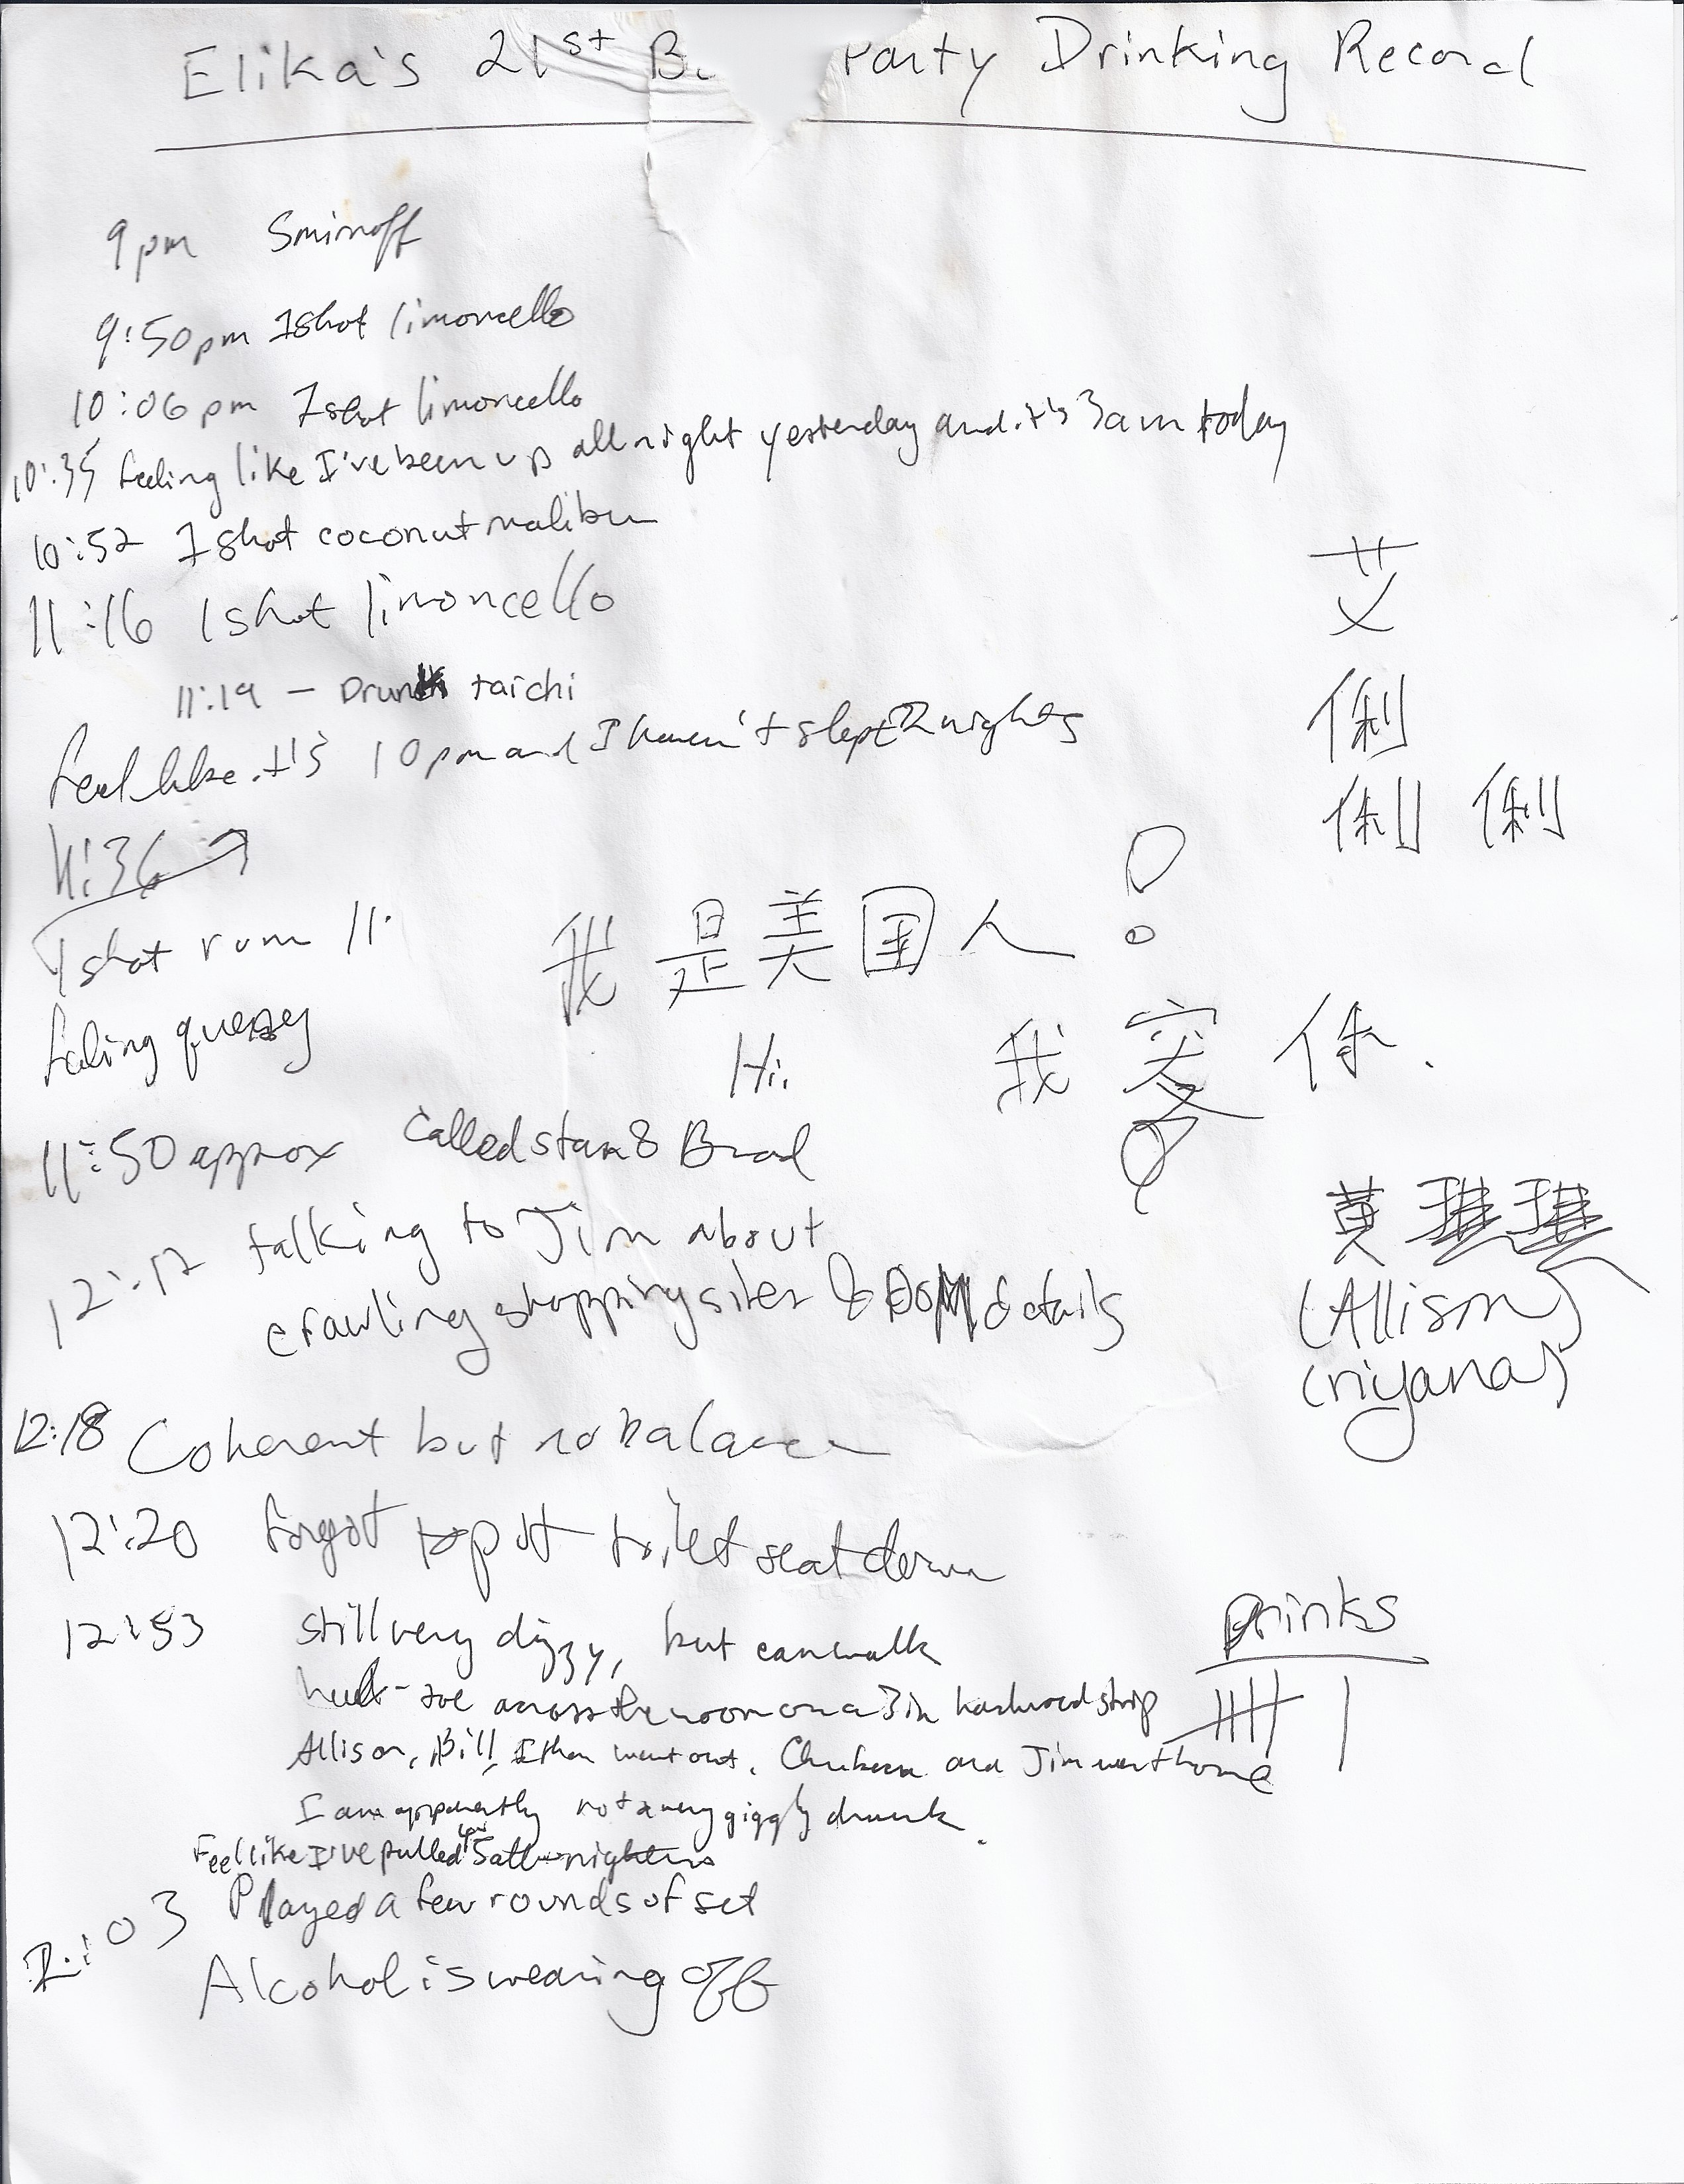 Elika's 21st B Party Drinking Record
9pm Smirnoff
9:50pm 1shot limoncello
10:06pm 1shot limoncello
10:35 feeling like I've been up all night yesterday and it's 3am today
10:52 1 shot coconut malibu
11:16 1 shot limoncello
11:19 - Drunk taichi
feel like it's 10pm and I haven't slept 2 nights
11:36
1 shot rum 11:
feeling queasy
艾
俐
俐 俐
我是美国人!
Hi. 我 你.
11:50 approx called stan & Brad
12:12 talking to Jim about
crawling shopping sites & DOM details
黄琪琪
(Allison)
(niyana)
12:18 Coherent but no balance
12:20 forgot to put toilet seat down
12:53 still very dizzy, but can walk
heel-toe across the room on a 3in hardwood strip
Allison, Bill, I then went out. and Jim went home
I am apparently not a very giggly drunk.
Feel like I've pulled 5 all-nighters
Drinks
2:03 Played a few rounds of set
Alcohol is wearing off